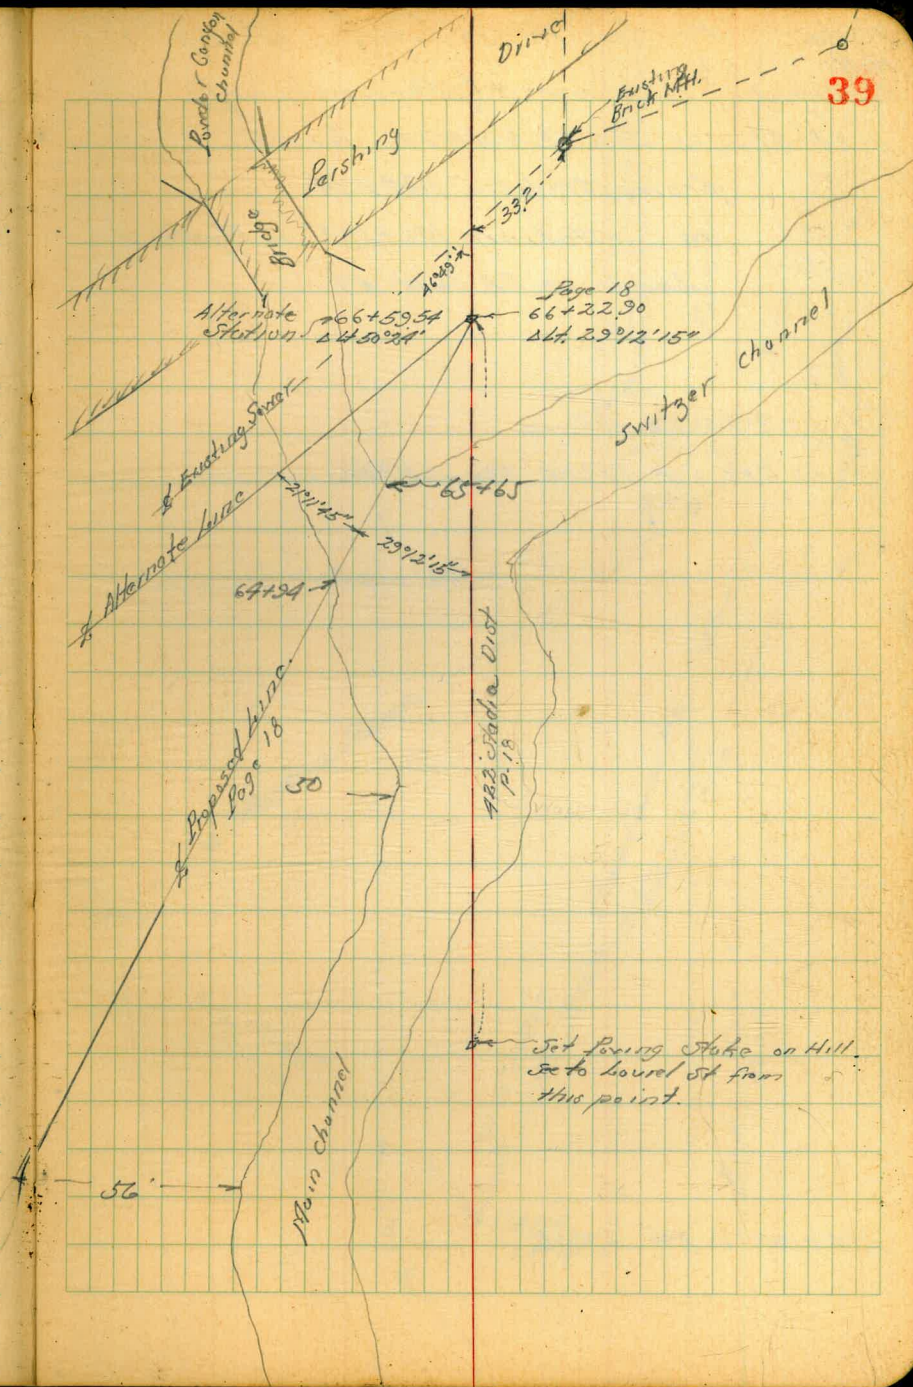 39
Powder Canyon
channel
Pershing
Drive
Bridge
Existing
Brick M.H.
33.2
46°49'
Alternate
Station
66+59.54
Δ Lt 50°24'
Page 18
66+22.90
Δ Lt. 29°12'15"
Switzer Channel
℄ Existing Sewer
℄ Alternate Line
65+65
21°11'45"
29°12'15"
64+94
℄ Proposed Line
Page 18
50
422' Stadia Dist
P. 18
Set Paving Stake on Hill.
See to Laurel St from
this point.
56'
Main Channel